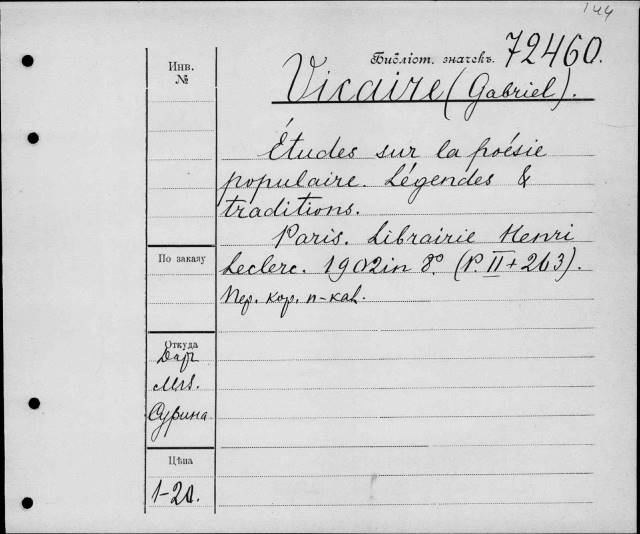 144
Библіот. значекъ. 72460.
Инв. №
Vicaire (Gabriel).
Études sur la poésie
populaire. Légendes &
traditions.
Paris. Librairie Henri
Leclerc. 1902 in 8º. (P. II + 263).
Пер. кор. п-кал.
По заказу
Откуда
Дар
Mrs.
Сурина
Цѣна
1-20.